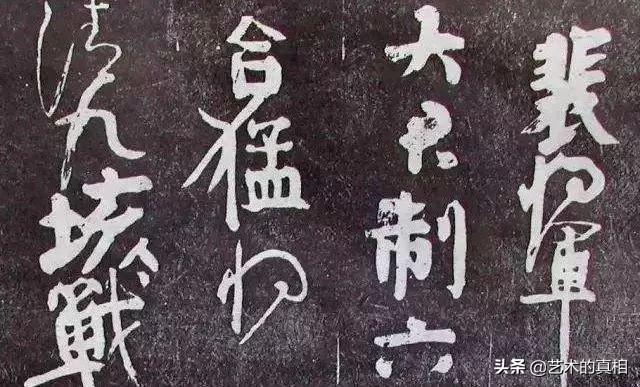 裴将軍
大君制六
合猛将
清九垓戰
头条 @艺术的真相